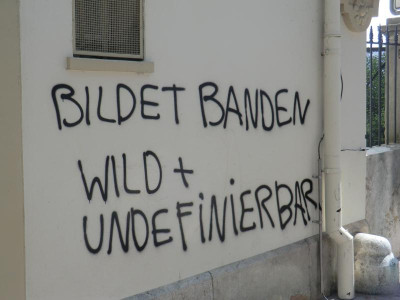 BILDET BANDEN
WILD +
UNDEFiNiERBAR